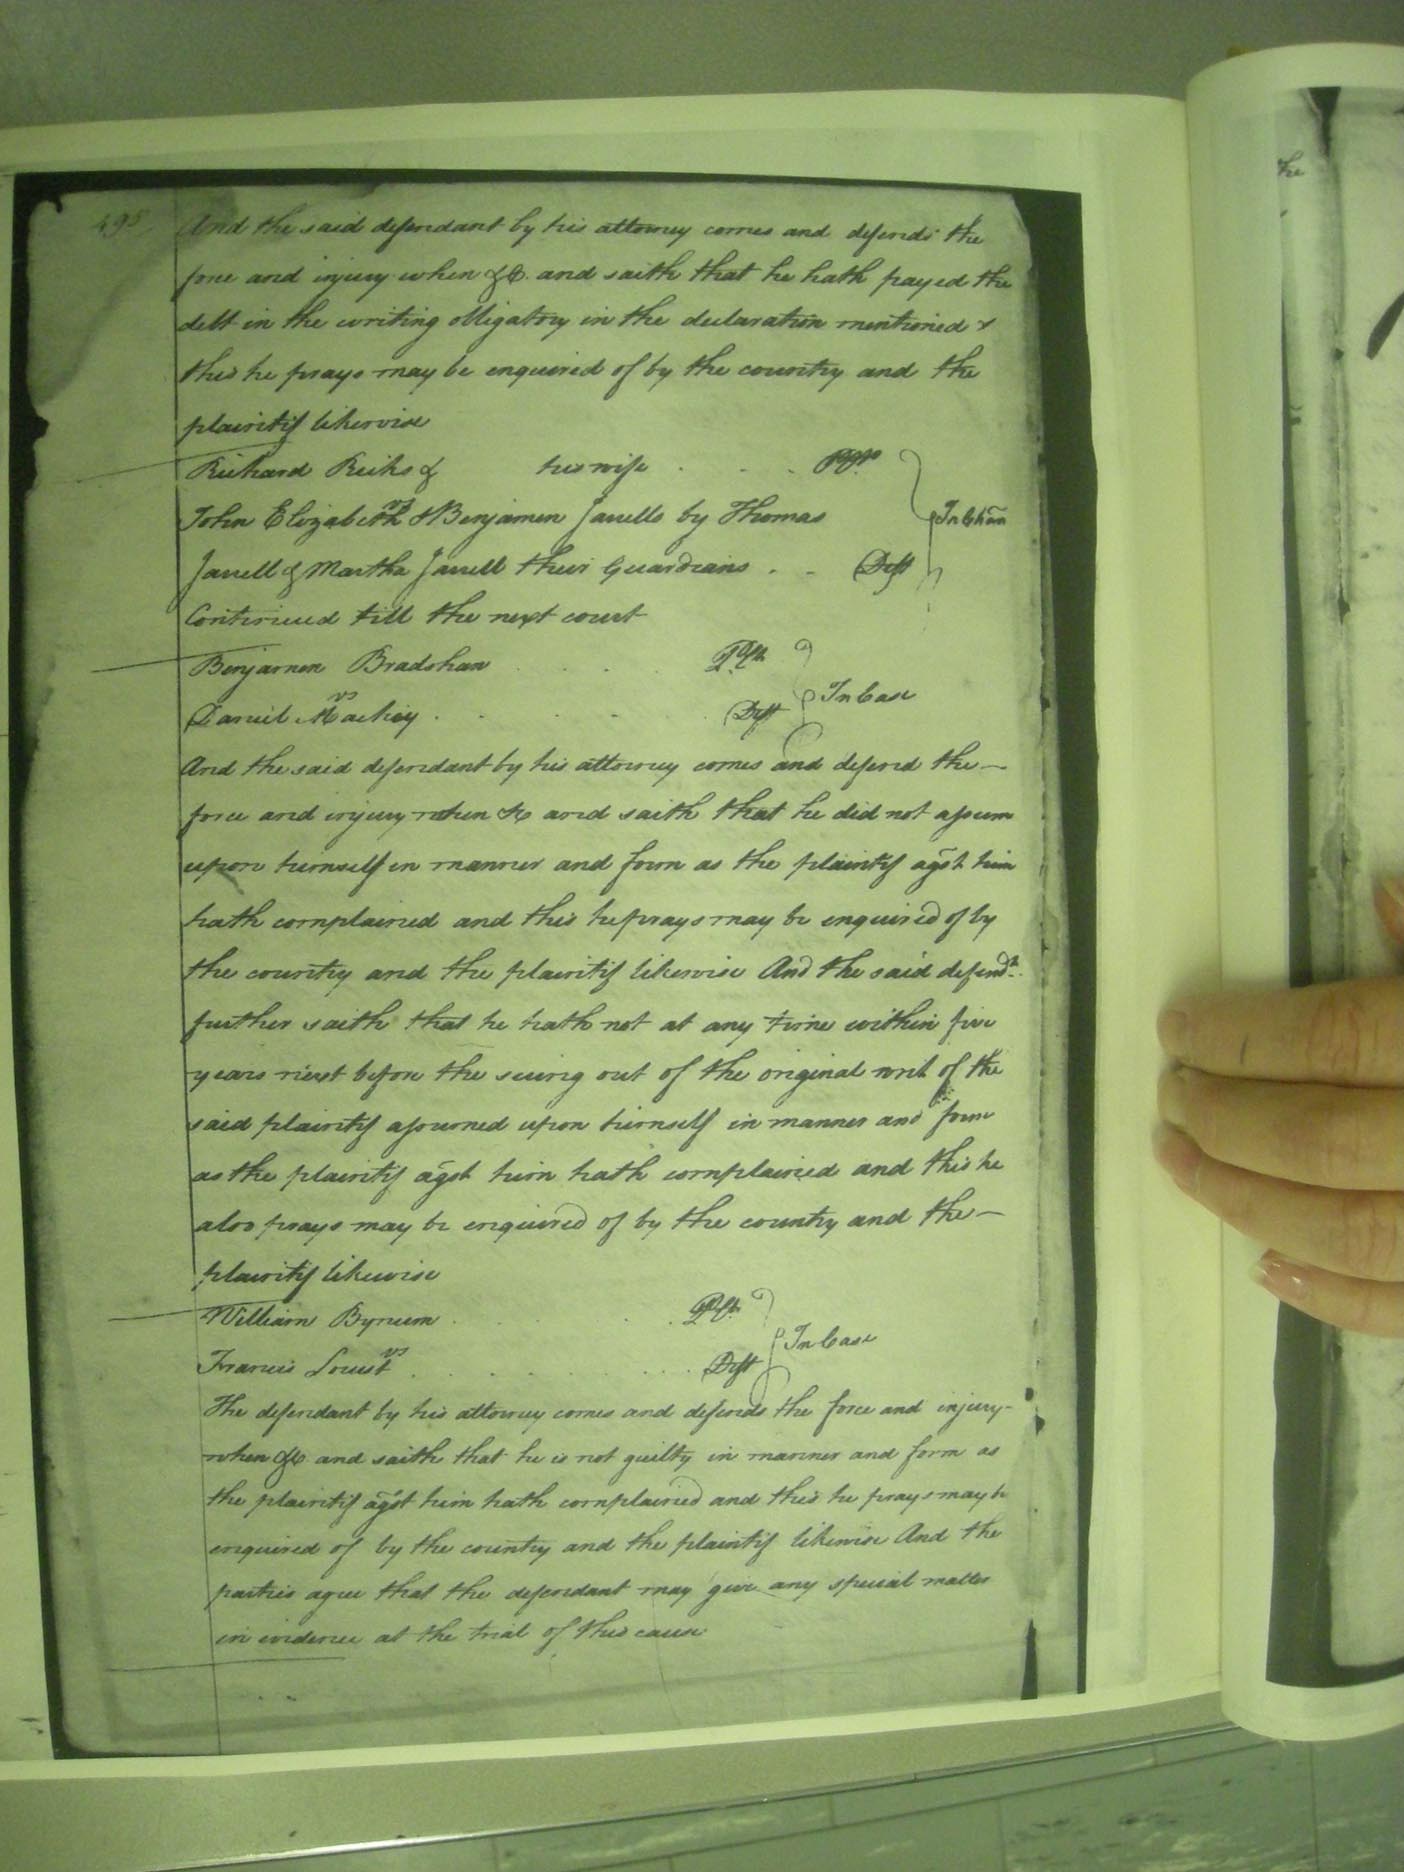 495
And the said defendant by his attorney comes and defends the
force and injury when &c. and saith that he hath payed the
debt in the writing obligatory in the declaration mentioned &
this he prays may be enquired of by the country and the
plaintif likewise
Richard Reiks & his wife . . . Pltfs
vs
In Chan
John Elizabeth & Benjamen Jarrells by Thomas
Jarrell & Martha Jarrell their Guardians . . Deft
Continued till the next court
Benjamen Bradshaw . . . Pltf
vs
In Case
Daniel Mackey . . . . . Deft
And the said defendant by his attorney comes and defend the —
force and injury when &c and saith that he did not assume
upon himself in manner and form as the plaintif agst him
hath complained and this he prays may be enquired of by
the country and the plaintif likewise And the said defendt.
further saith that he hath not at any time within five
years next before the suing out of the original writ of the
said plaintif assumed upon himself in manner and form
as the plaintif agst him hath complained and this he
also prays may be enquired of by the country and the —
plaintif likewise
William Bynum . . . . Pltf.
vs
In Case
Francis . . . . . . . Deft
The defendant by his attorney comes and defends the force and injury
when &c and saith that he is not guilty in manner and form as
the plaintif agst him hath complained and this he prays may be
enquired of by the country and the plaintif likewise And the
parties agree that the defendant may give any special matter
in evidence at the trial of this cause
the